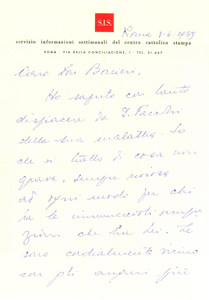 S.I.S.
servizio informazioni settimanali del centro cattolico stampa
ROMA - VIA DELLA CONCILIAZIONE, 1 - TEL. 51.
Roma
Caro Don
Ho saputo con tanto
dispiacere da D.
della sua malattia. So
che si tratta di cosa non
grave, sempre noiosa
ad ogni modo per chi
ha le innumerevoli
che ha lei. Le
sono cordialmente vicino
con gli auguri più